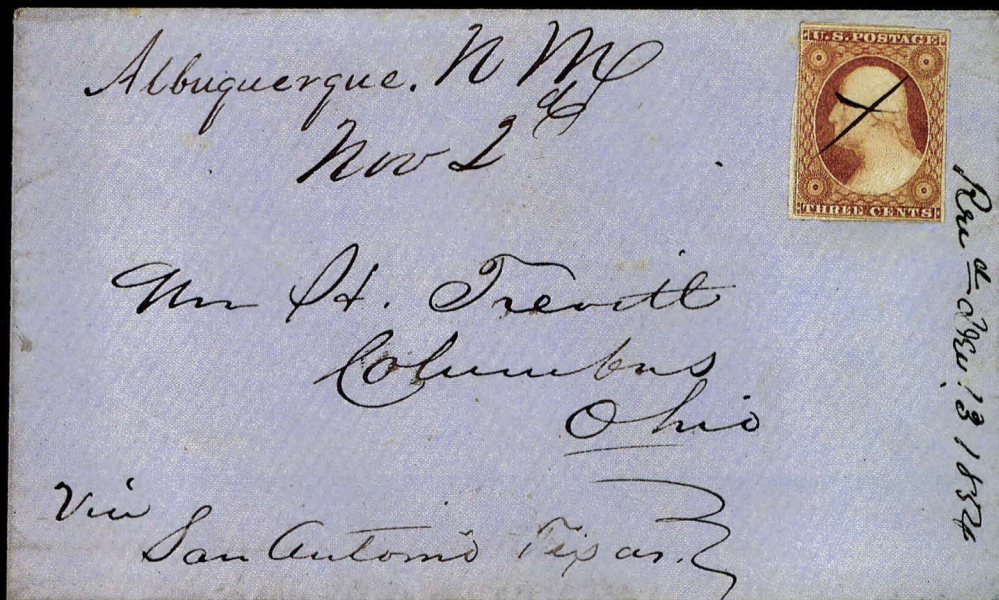 Albuquerque. N M
Nov 2d
U.S. POSTAGE
THREE CENTS
Wm H. Trevitt
Columbus
Ohio
Via
San Antonio Texas.
13 1854